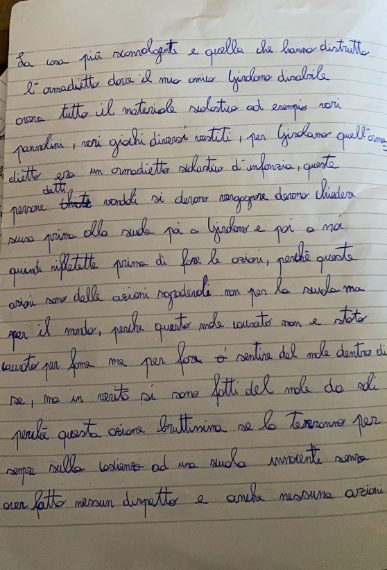 La cosa più sconvolgente e quella che hanno distrutto
l'armadietto dove il mio amico Girolamo disabile
aveva tutto il materiale scolastico ad esempio vari
pannolini, vari giochi diversi vestiti, per Girolamo quell'arma
dietto era un armadietto scolastico d'infanzia, queste
persone detti vandali si devono vergognare devono chiedere
scusa prima alla scuola poi a Girolamo e poi a noi
quindi riflettete prima di fare le azioni, perché queste
azioni sono delle azioni sgradevoli non per la scuola ma
per il mondo, perche questo male causato non e stato
causato per fame ma per fare sentire del male dentro di
se, ma in verità si sono fatti del male da soli
perché questa azione bruttissima se la terranno per
sempre sulla coscienza ad una scuola innocente senza
aver fatto nessun dispetto e anche nessuna azioni